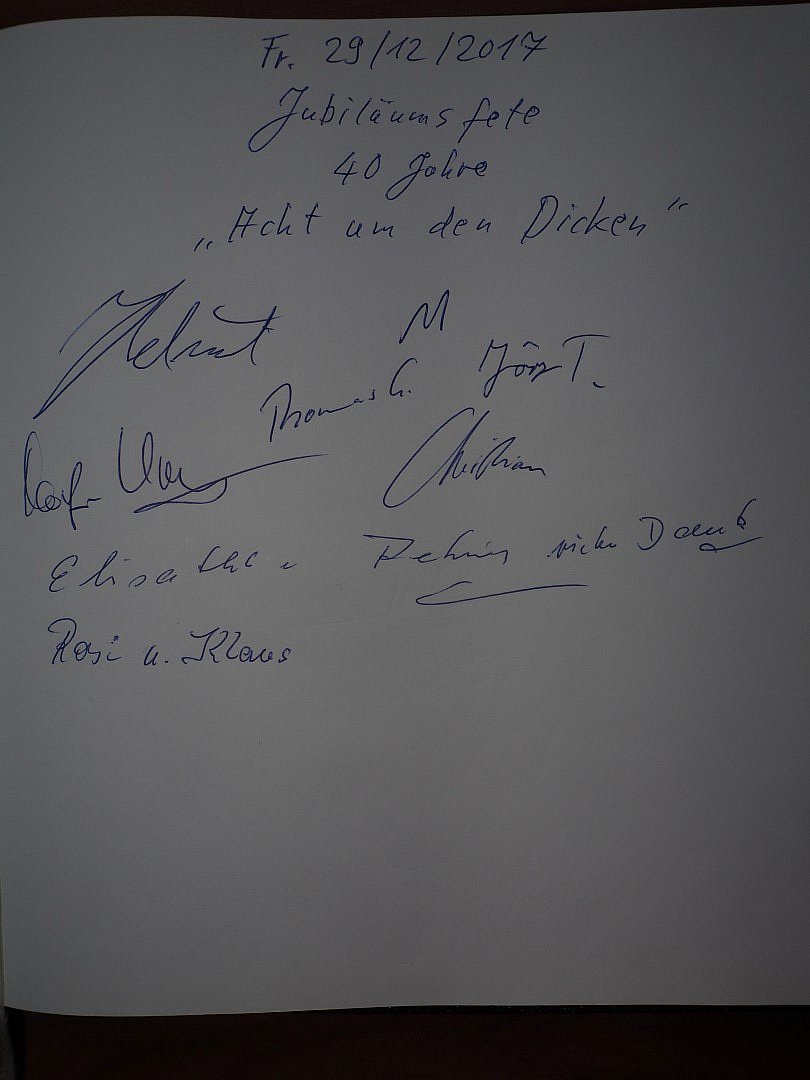 Fr. 29/12/2017
Jubiläumsfete
40 Jahre
„Acht um den Dicken“
Helmut M
Thomas G. Jörg T.
Christian
Elisabeth u. Dank
Rosi u. Klaus